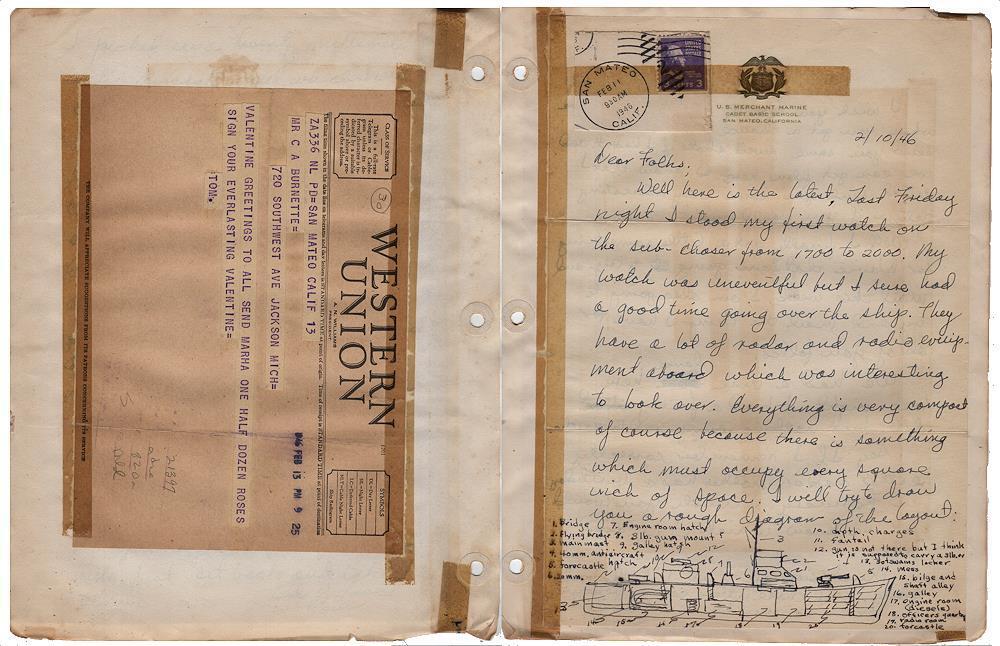 WESTERN
UNION
A. N. WILLIAMS
PRESIDENT
1201
CLASS OF SERVICE
This is a full-rate
Telegram or Cable-
gram unless its de-
ferred character is in-
dicated by a suitable
symbol above or pre-
ceding the address.
SYMBOLS
30
ZA336 NL PD=SAN MATEO CALIF 13
1946 FEB 13 PM 9 25
MR C A BURNETTE=
720 SOUTHWEST AVE JACKSON MICH=
VALENTINE GREETINGS TO ALL SEND MARHA ONE HALF DOZEN ROSES
SIGN YOUR EVERLASTING VALENTINE=
TOM.
THE COMPANY WILL APPRECIATE SUGGESTIONS FROM ITS PATRONS CONCERNING ITS SERVICE
SAN MATEO
FEB 11
930 AM
1946
CALIF.
U.S. MERCHANT MARINE
CADET BASIC SCHOOL
SAN MATEO, CALIFORNIA
2/10/46
Dear Folks,
Well here is the latest, Last Friday
night I stood my first watch on
the sub-chaser from 1700 to 2000. My
watch was uneventful but I sure had
a good time going over the ship. They
have a lot of radar and radio equip-
ment aboard which was interesting
to look over. Everything is very compact
of course because there is something
which must occupy every square
inch of space. I will try to draw
you a rough diagram of the layout:
1. Bridge
2. Flying bridge
3. main mast
4. 40mm. antiaircraft
5. forecastle hatch
6. 20mm.
7. Engine room hatch
8. 3 lb. gun mount
9. galley hatch
10. depth charges
11. fantail
12. gun is not there but I think
it is supposed to carry a 3lb.er
13. botswains locker
14. mess
15. bilge and
shaft alley
16. galley
17. engine room
(diesels)
18. officers quarters
19. radio room
20. forcastle